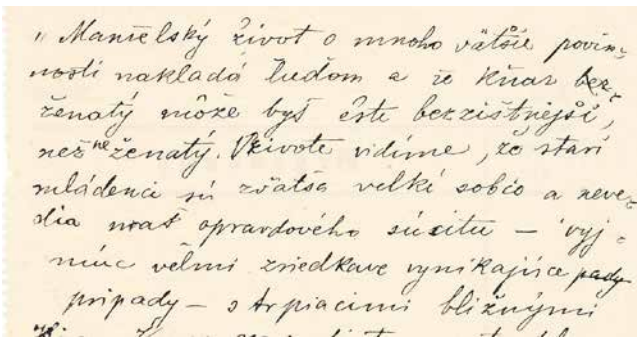 „ Manželský život o mnoho vätšie povin-
nosti nakladá ľuďom a že kňaz bez-
ženatý môže byť ešte bezzištnejší,
než ne ženatý. V živote vidíme, že starí
mládenci sú zväťša velkí sobci a neve-
dia mať opravdového súcitu — vyj-
múc veľmi zriedkave vynikajúce pady
prípady — s trpiacimi bližnými